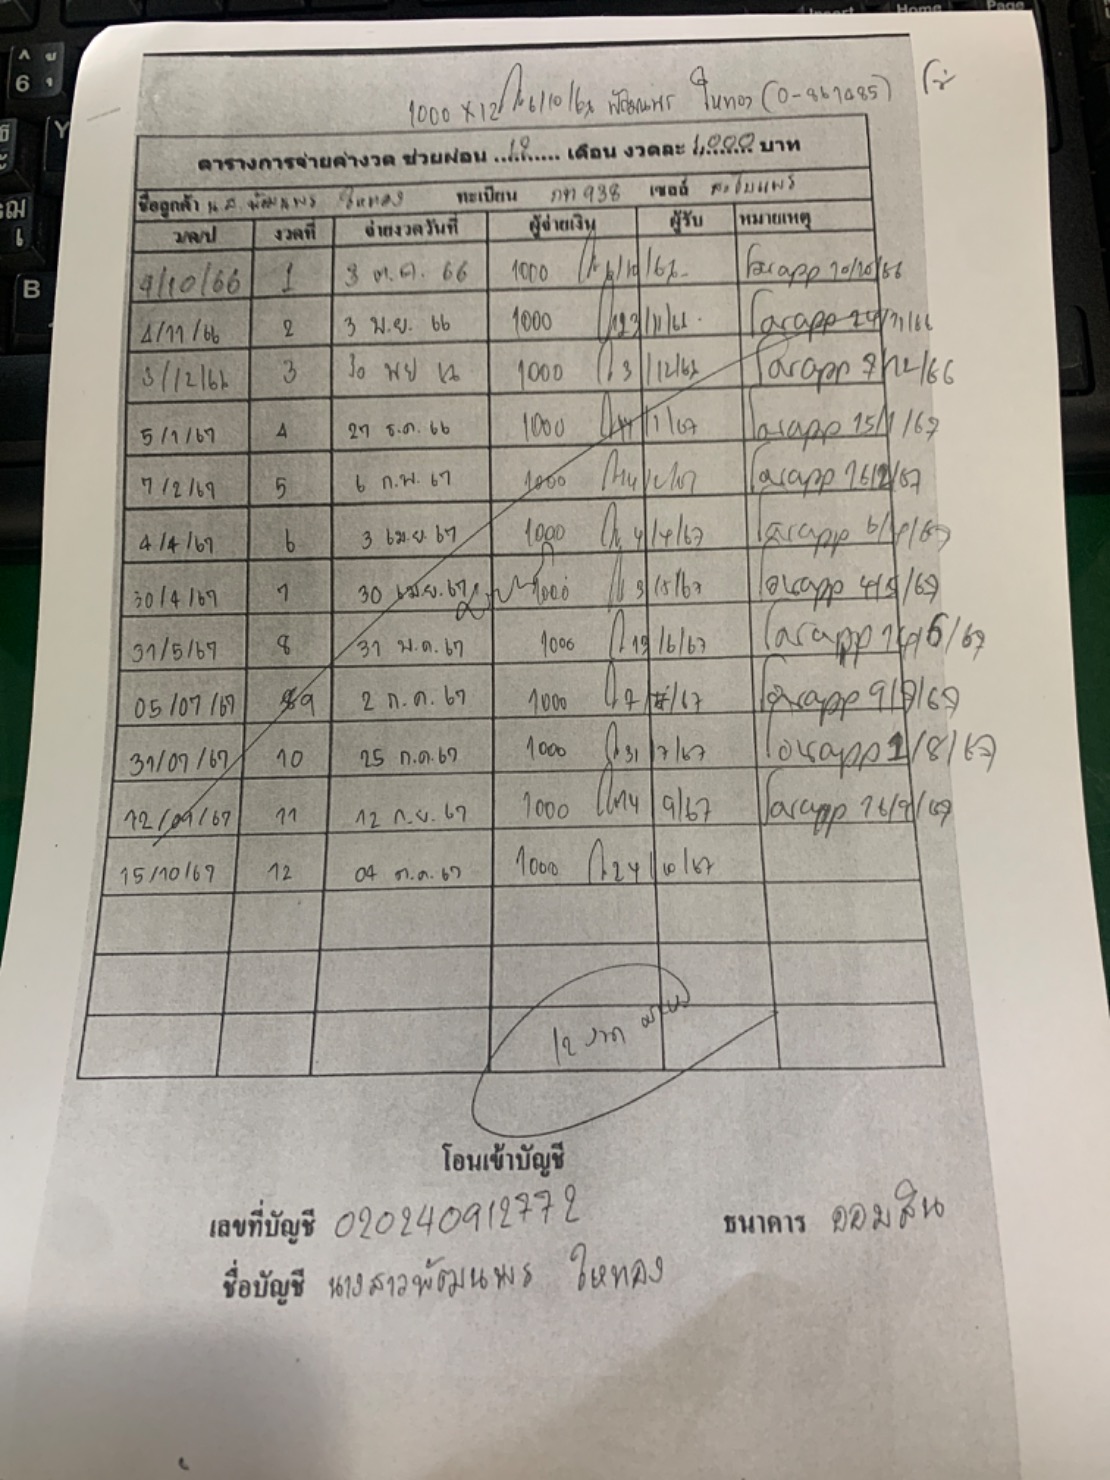 1000 x 12 6/10/66 พัฒนพร ใหทอง (0-867485)
ตารางการจ่ายค่างวด ช่วยผ่อน ...12... เดือน งวดละ 1,000 บาท
ชื่อลูกค้า น.ส. พัฒนพร ใหทอง ทะเบียน 938 เซลล์
ว/ด/ป งวดที่ จ่ายงวดวันที่ ผู้จ่ายเงิน ผู้รับ หมายเหตุ
9/10/66 1 3 ต.ค. 66 1000 โอนapp 20/10/66
4/11/66 2 3 พ.ย. 66 1000 โอนapp 24/11/66
3/12/66 3 30 พย 66 1000 3/12/66 โอนapp 7/12/66
5/1/67 4 27 ธ.ค. 66 1000 11/1/67 โอนapp 15/1/67
7/2/67 5 6 ก.พ. 67 1000 14/2/67 โอนapp 16/2/67
4/4/67 6 3 เม.ย. 67 1000 4/4/67 โอนapp 6/4/67
30/4/67 7 30 เม.ย. 67 1000 3/5/67 โอนapp 4/5/67
31/5/67 8 31 พ.ค. 67 1000 13/6/67 โอนapp 14/6/67
05/07/67 9 2 ก.ค. 67 1000 7/7/67 โอนapp 9/7/67
31/07/67 10 25 ก.ค. 67 1000 31/7/67 โอนapp 1/8/67
12/09/67 11 12 ก.ย. 67 1000 14/9/67 โอนapp 16/9/67
15/10/67 12 04 ต.ค. 67 1000 24/10/67
12 งวด
โอนเข้าบัญชี
เลขที่บัญชี 020240912772 ธนาคาร ออมสิน
ชื่อบัญชี นางสาวพัฒนพร ใหทอง